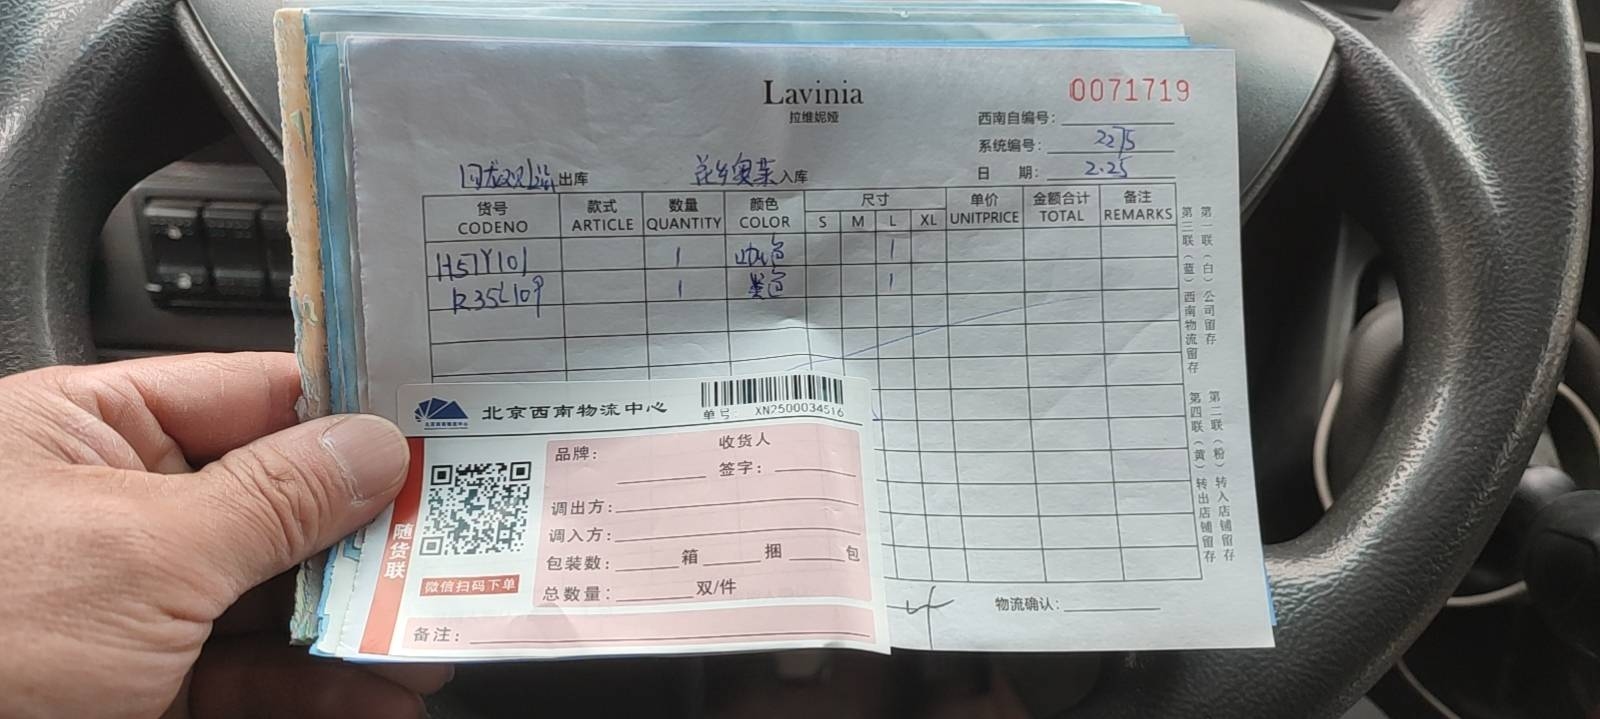 Lavinia
拉维妮娅
0071719
西南自编号:
系统编号: 2275
日 期: 2.25
出库 花乡奥莱入库
货号 款式 数量 颜色 尺寸 单价 金额合计 备注
CODENO ARTICLE QUANTITY COLOR S M L XL UNITPRICE TOTAL REMARKS
H57Y101 1 1
R35L109 1 黑色 1
第一联(白)公司留存
第三联(蓝)西南物流留存
第二联(粉)转入店铺留存
第四联(黄)转出店铺留存
北京西南物流中心
单号: XN2500034516
品牌: 收货人
签字:
调出方:
调入方:
包装数: 箱 捆 包
总数量: 双/件
备注:
随货联
微信扫码下单
物流确认: